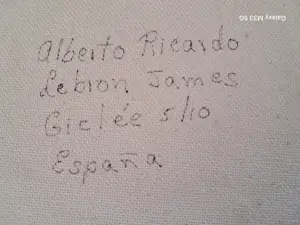 Galaxy M33 5G
Alberto Ricardo
Lebron James
Giclée 5/10
España